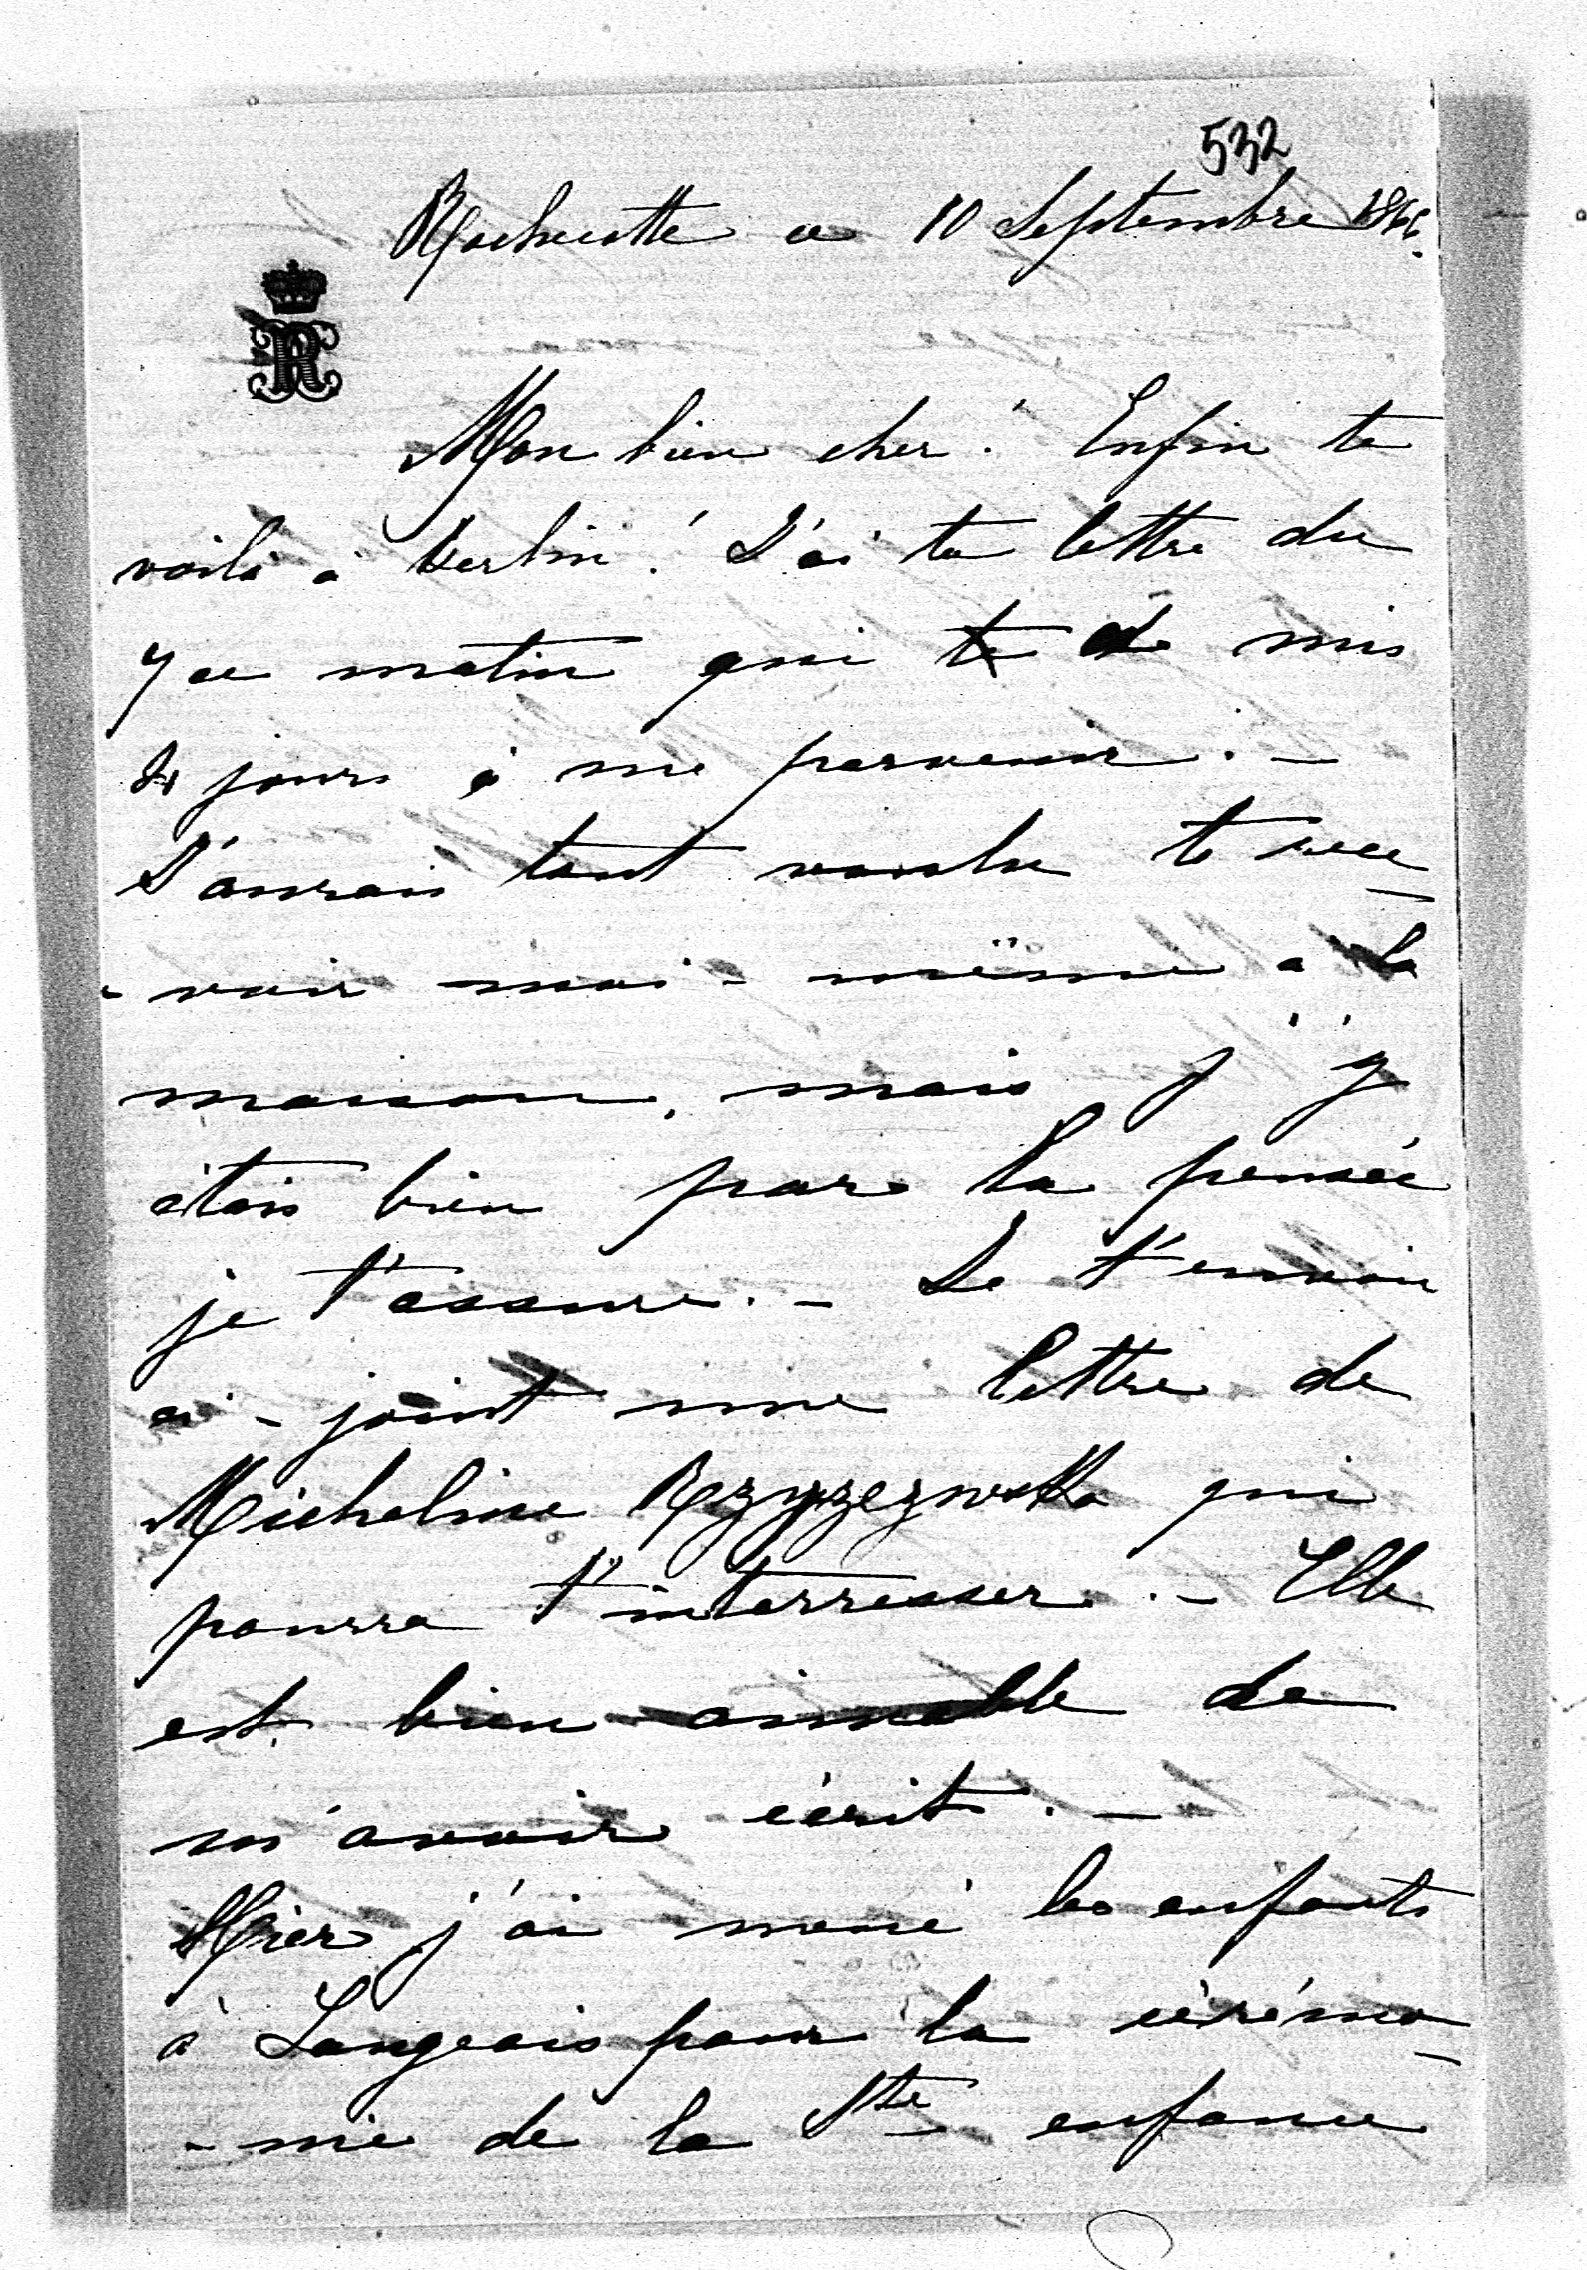 532
Rochecotte ce 10 Septembre 1866.
R
Mon bien cher ! Enfin te
voilà à Berlin ! J'ai ta lettre du
7 ce matin qui a mis
jours à me parvenir. –
J'aurais tant voulu te rece
- voir moi-même à la
maison, mais j'y
étais bien par la pensée
je t'assure. – Je t'envoie
ci-joint une lettre de
Micheline qui
pourra t'interresser. – Elle
est bien aimable de
m'avoir écrit. –
Hier j'ai mené les enfants
à Langeais pour la cérémo-
- nie de la Ste enfance